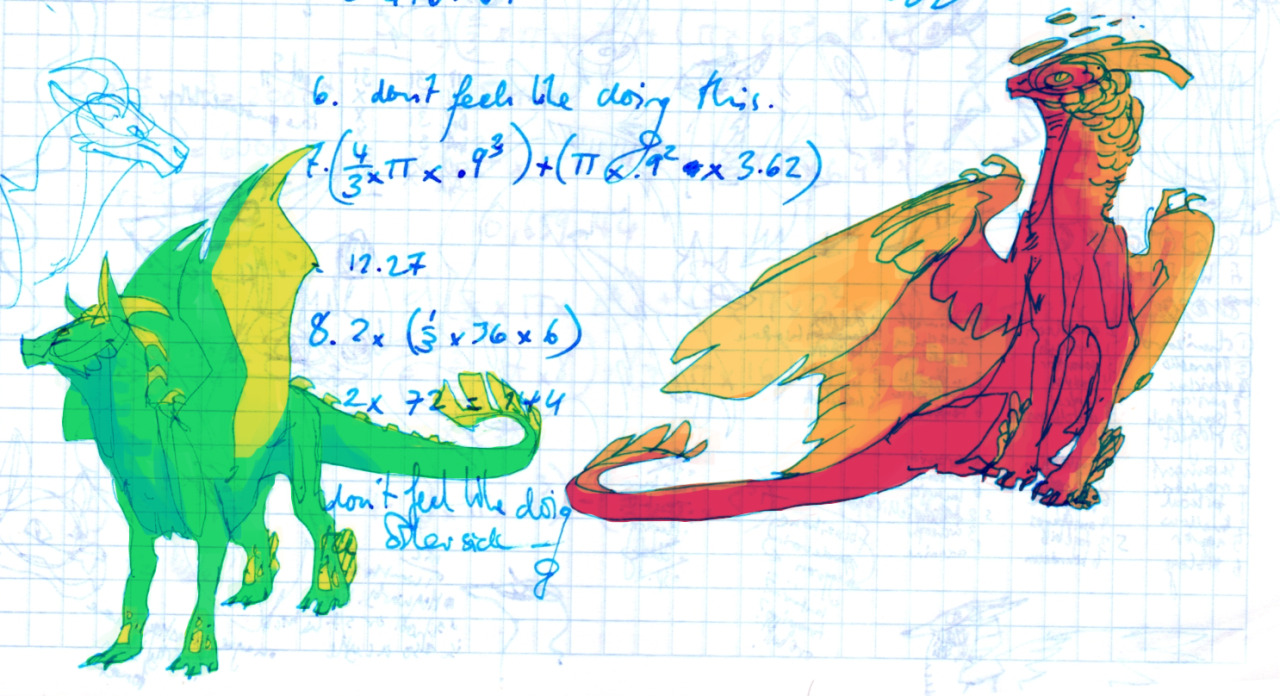 6. don't feel like doing this.
7. (4/3 x π x .9³) + (π x .9² x 3.62)
= 12.27
8. 2 x (1/3 x 36 x 6)
2 x 72 = 144
don't feel like doig
other side –